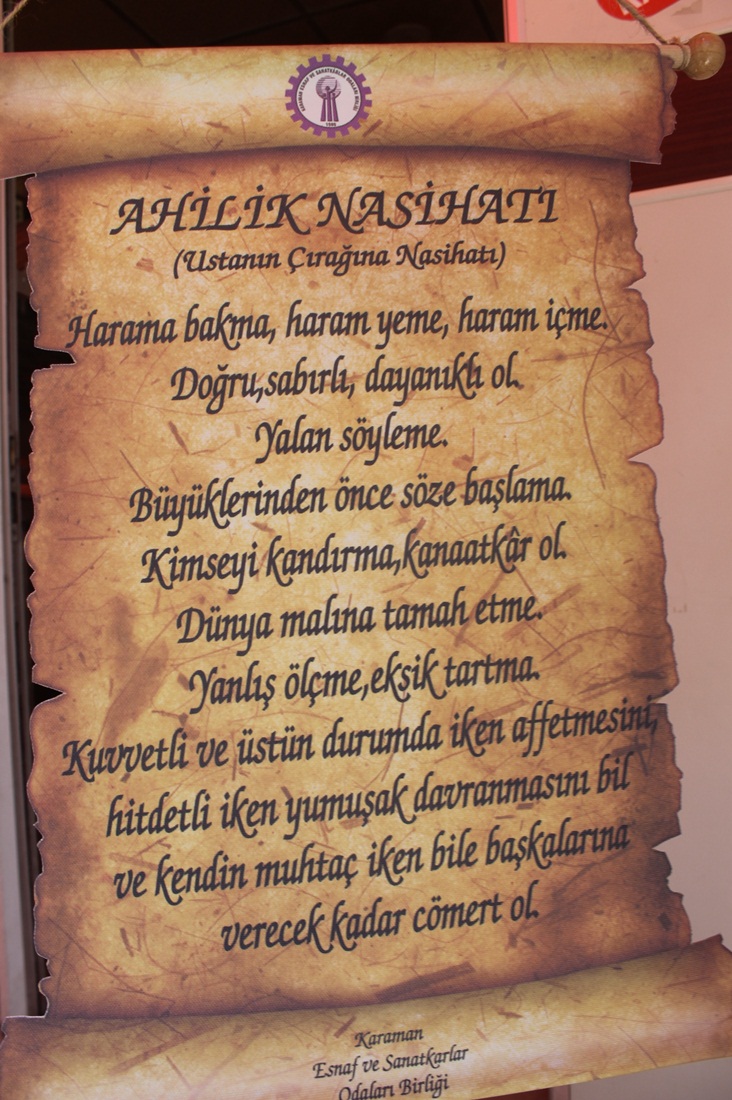 AHİLİK NASİHATI
(Ustanın Çırağına Nasihatı)
Harama bakma, haram yeme, haram içme.
Doğru,sabırlı, dayanıklı ol.
Yalan söyleme.
Büyüklerinden önce söze başlama.
Kimseyi kandırma,kanaatkâr ol.
Dünya malına tamah etme.
Yanlış ölçme,eksik tartma.
Kuvvetli ve üstün durumda iken affetmesini,
hitdetli iken yumuşak davranmasını bil
ve kendin muhtaç iken bile başkalarına
verecek kadar cömert ol.
Karaman
Esnaf ve Sanatkarlar
Odaları Birliği